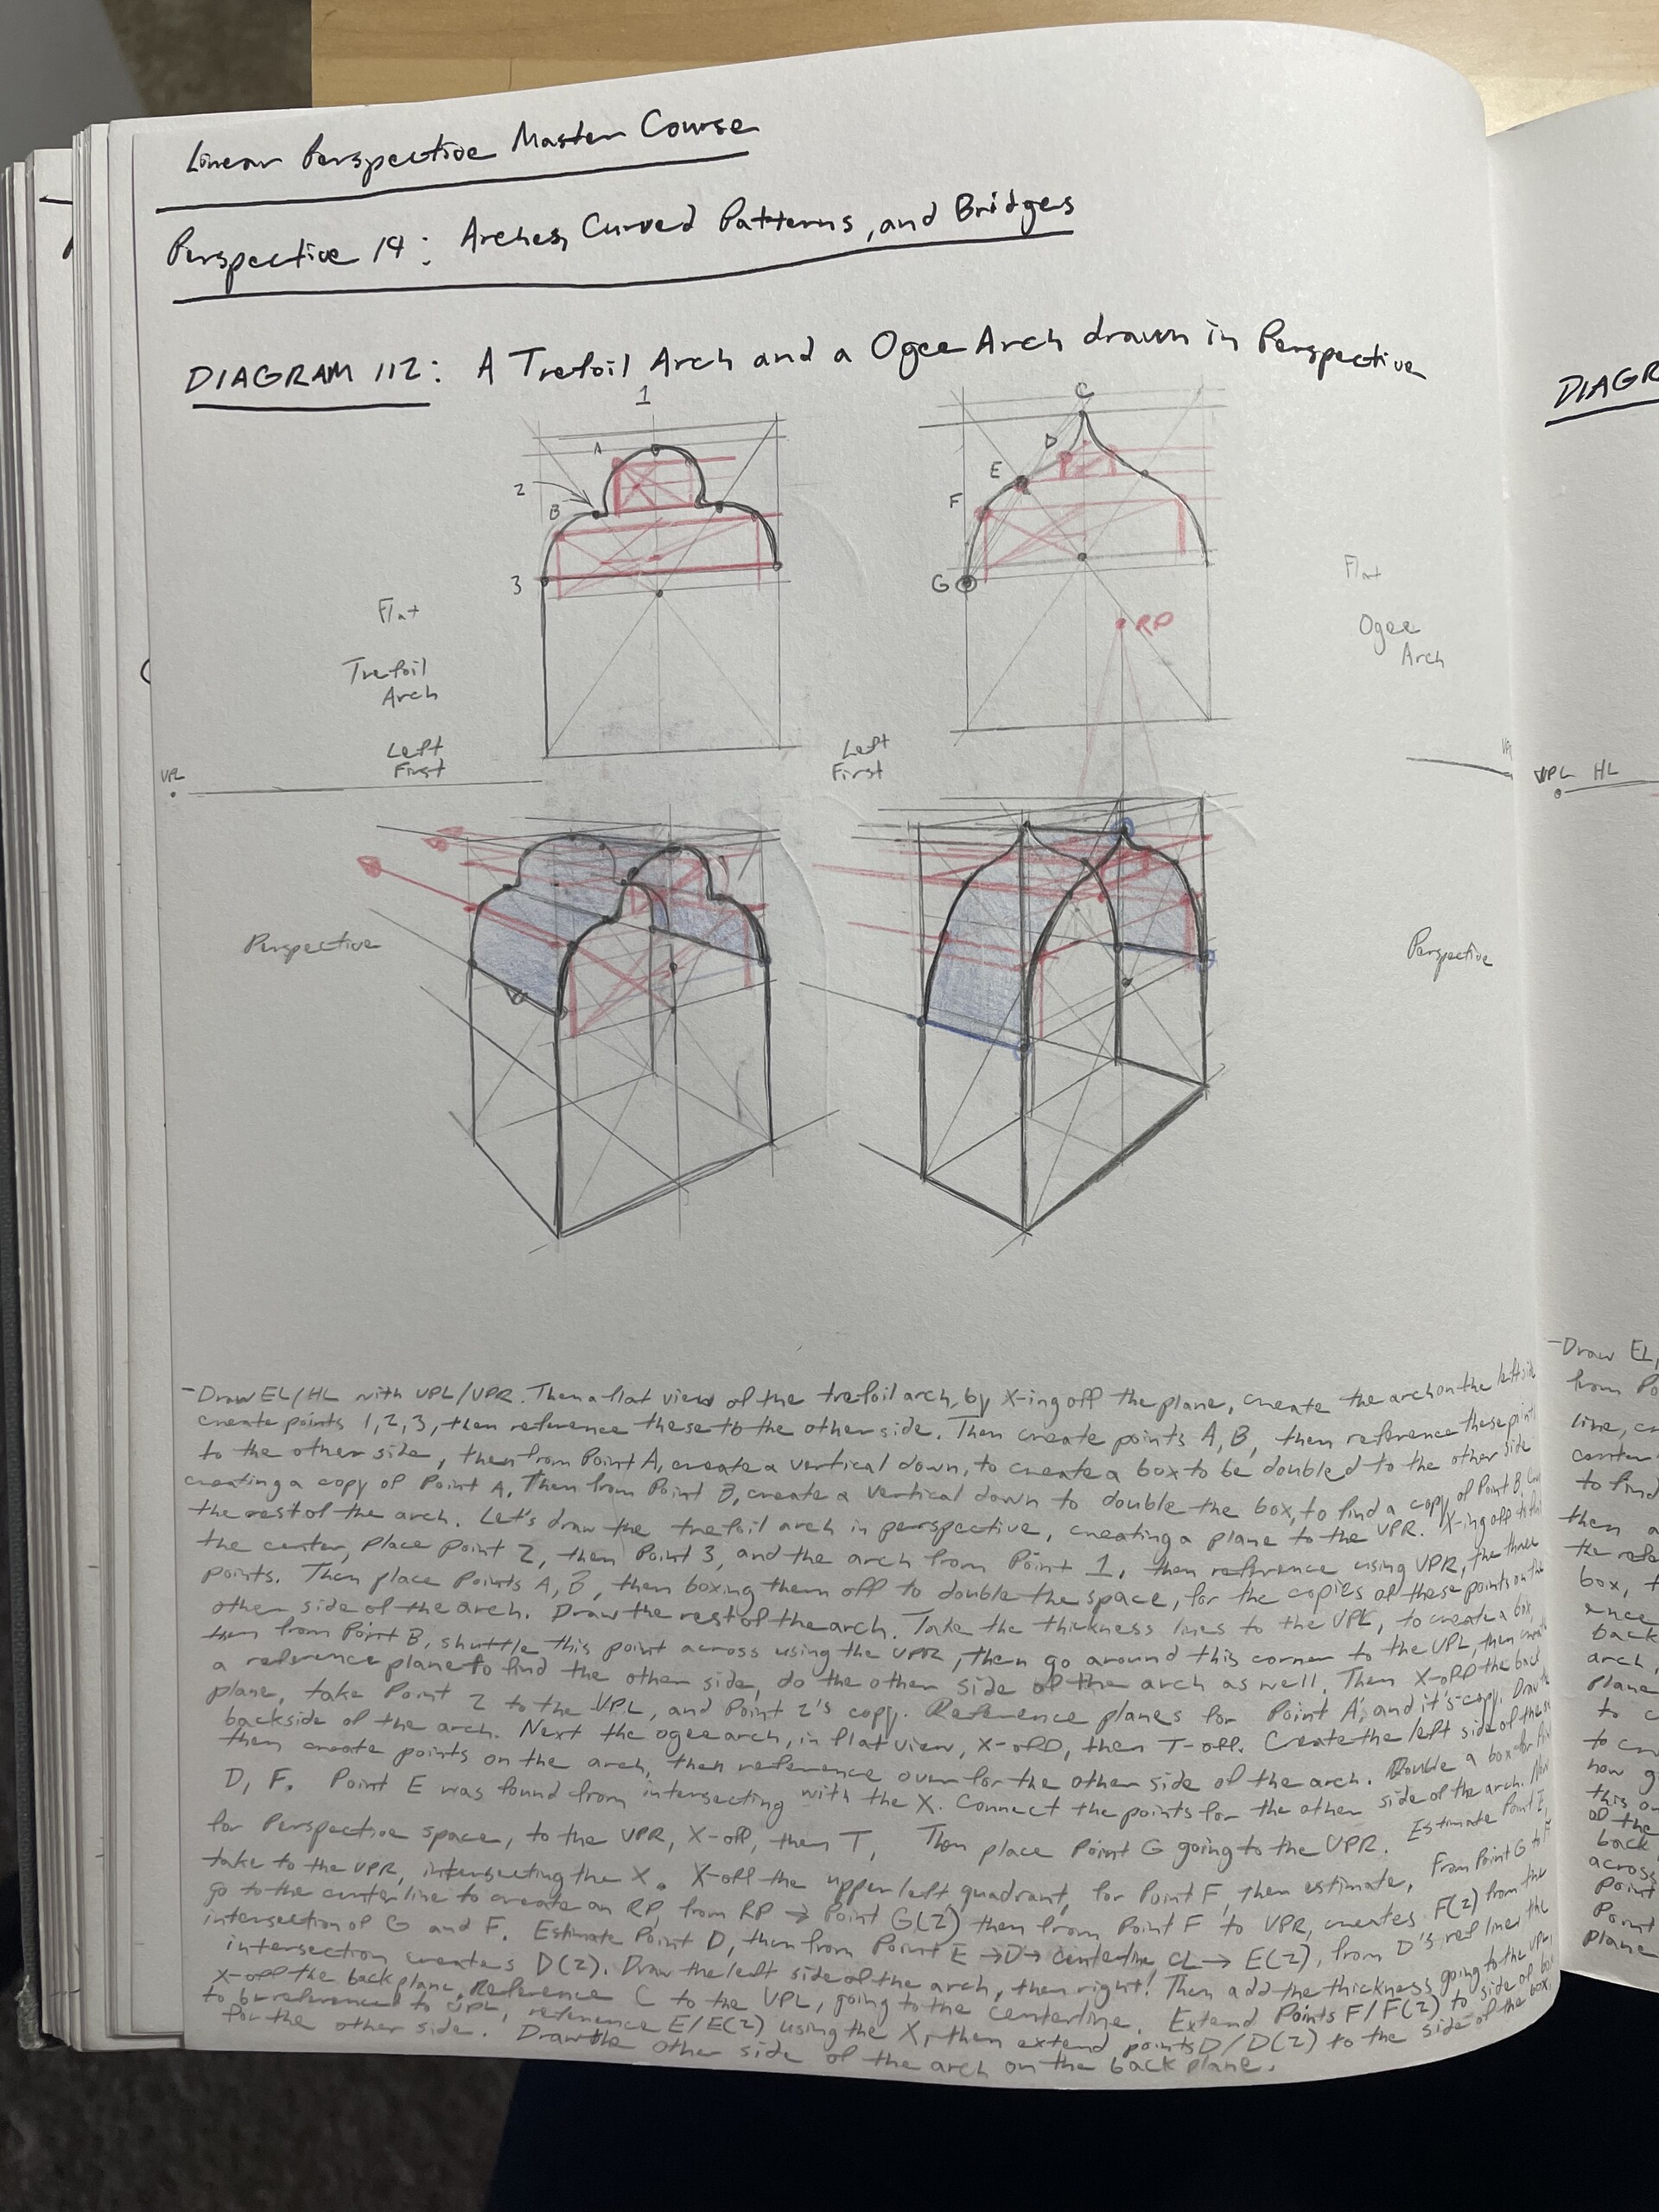 Linear Perspective Master Course
Perspective 14: Arches, Curved Patterns, and Bridges
DIAGRAM 112: A Trefoil Arch and a Ogee Arch drawn in Perspective
DIAGR
1
A
2
B
3
C
D
E
F
G
RP
Flat
Trefoil
Arch
Left
First
Flat
Ogee
Arch
Left
First
VPL
VPL HL
Perspective
Perspective
-Draw EL/HL with VPL/VPR. Then a flat view of the trefoil arch, by X-ing off the plane, create the arch on the left side
create points 1,2,3, then reference these to the other side. Then create points A, B, then reference these points
to the other side, then from Point A, create a vertical down, to create a box to be doubled to the other side
creating a copy of Point A. Then from Point B, create a vertical down to double the box, to find a copy of Point B,
the rest of the arch. Let's draw the trefoil arch in perspective, creating a plane to the VPR. X-ing off to find
the center, place point 2, then Point 3, and the arch from Point 1, then reference using VPR, the three
points. Then place Points A, B, then boxing them off to double the space, for the copies of these points on the
other side of the arch. Draw the rest of the arch. Take the thickness lines to the VPL, to create a box,
then from Point B, shuttle this point across using the VPR, then go around this corner to the VPL, then
a reference plane to find the other side, do the other side of the arch as well. Then X-off the back
plane, take Point 2 to the VPL, and Point 2's copy. Reference planes for Point A, and it's copy. Draw the
backside of the arch. Next the ogee arch, in flat view, X-off, then T-off. Create the left side of the
then create points on the arch, then reference over for the other side of the arch. Double a box for
D, F. Point E was found from intersecting with the X. Connect the points for the other side of the arch. Now
for Perspective space, to the VPR, X-off, then T, Then place Point G going to the VPR. Estimate Point E,
take to the VPR, intersecting the X. X-off the upper left quadrant, for Point F, then estimate, From Point G to F
go to the centerline to create an RP, from RP → Point G(2) then from Point F to VPR, creates F(2) from the
intersection of G and F. Estimate Point D, then from Point E → D → Centerline CL → E(2), from D's ref lines the
intersection creates D(2). Draw the left side of the arch, then right! Then add the thickness going to the VPL,
X-off the back plane. Reference C to the VPL, going to the centerline. Extend Points F/F(2) to side of box
to be referenced to VPL, reference E/E(2) using the X, then extend points D/D(2) to the side of the box,
for the other side. Draw the other side of the arch on the back plane.
-Draw EL/
from Po
line, cr
center
to find
then a
the refe
box, t
ence
back
arch,
plane
to c
to cr
how g
this o
of the
back
across
Point
Point
plane